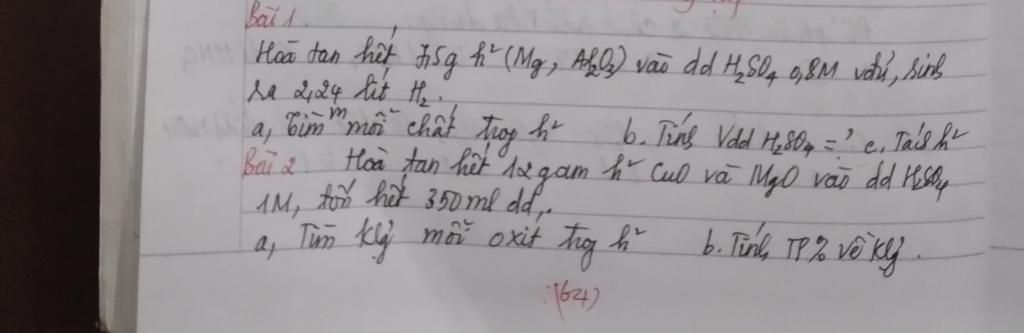 Bài 1.
Hoà tan hết 7,5g h² (Mg, Al2O3) vào dd H2SO4 0,8M vđủ, sinh
ra 2,24 lít H2.
a, Tìm m mỗi chất trog h² b. Tính Vdd H2SO4 = ? c. Tách h²
Bài 2. Hoà tan hết 12 gam h² CuO và MgO vào dd H2SO4
1M, tốn hết 350ml dd.
a, Tìm klg mỗi oxit trg h² b. Tính TP% về klg.
(64)